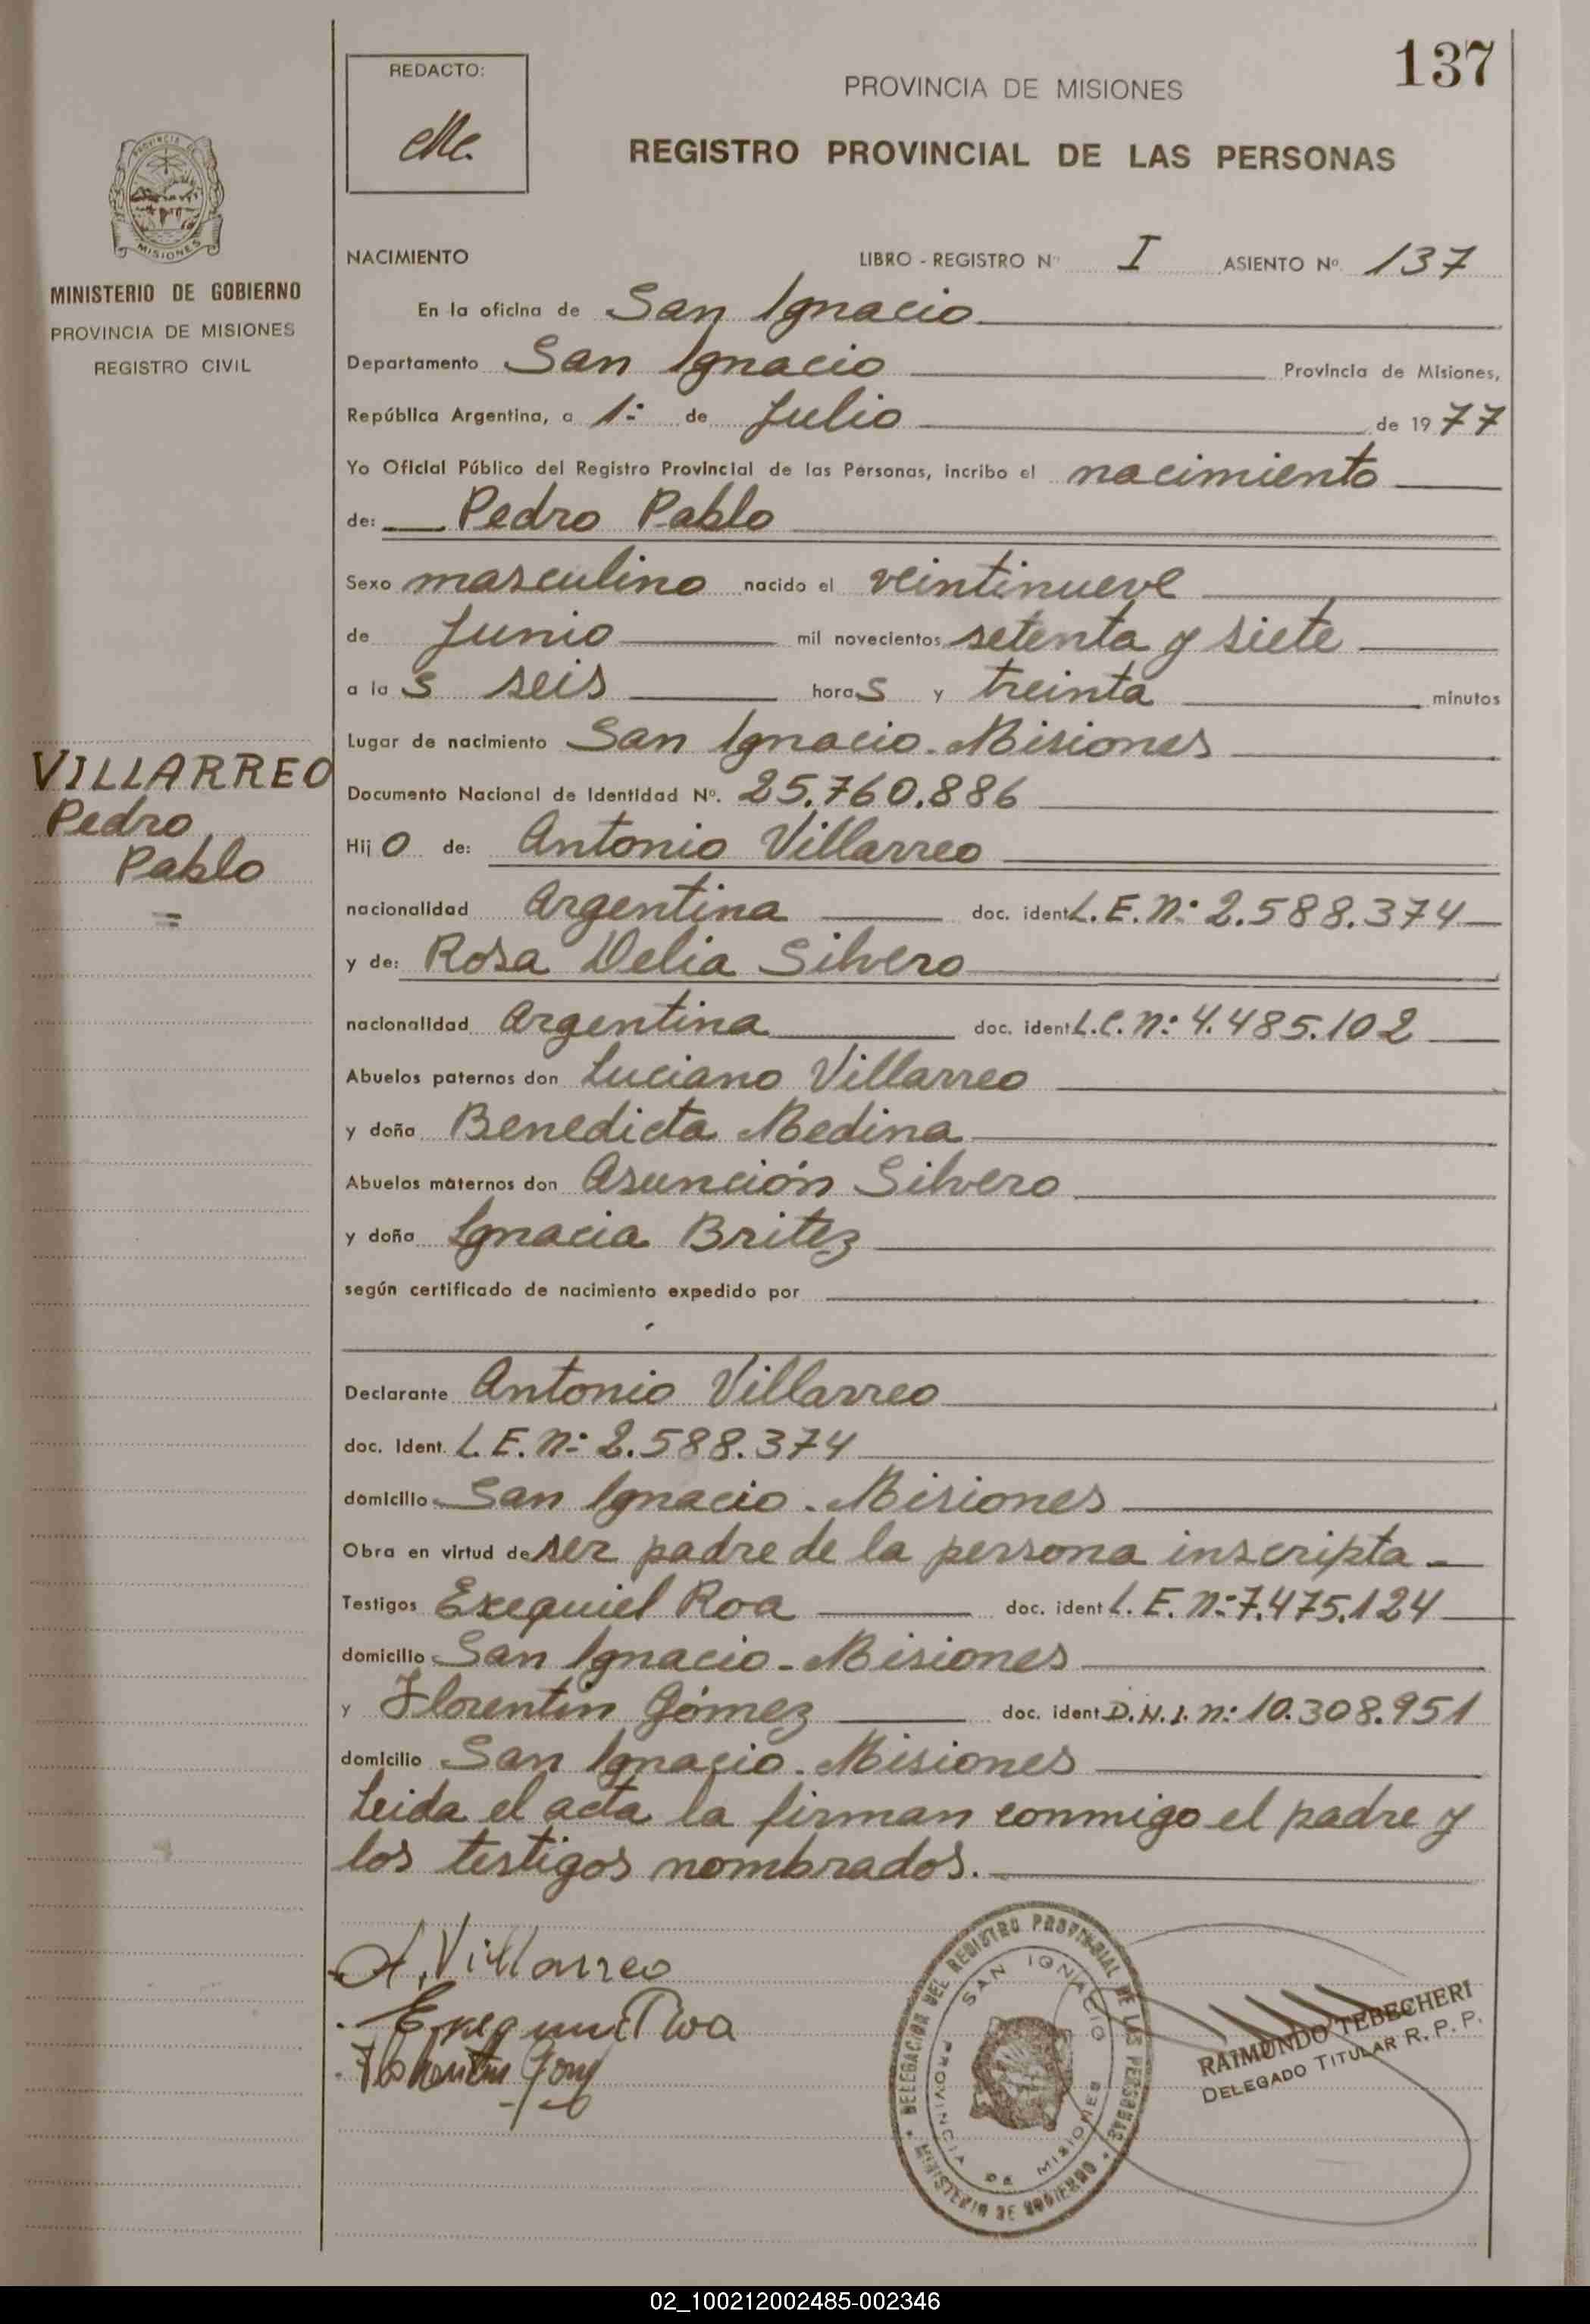 137
REDACTO:
PROVINCIA DE MISIONES
REGISTRO PROVINCIAL DE LAS PERSONAS
PROVINCIA DE
MISIONES
MINISTERIO DE GOBIERNO
PROVINCIA DE MISIONES
REGISTRO CIVIL
NACIMIENTO LIBRO - REGISTRO Nº I ASIENTO Nº 137
En la oficina de San Ignacio
Departamento San Ignacio Provincia de Misiones,
República Argentina, a 1º de Julio de 1977
Yo Oficial Público del Registro Provincial de las Personas, incribo el nacimiento
de: Pedro Pablo
Sexo masculino nacido el veintinueve
de Junio mil novecientos setenta y siete
a las seis horas y treinta minutos
Lugar de nacimiento San Ignacio. Misiones
VILLARREO
Pedro
Pablo
Documento Nacional de Identidad Nº. 25.760.886
Hijo de: Antonio Villarreo
nacionalidad Argentina doc. ident. L.E. Nº 2.588.374
y de: Rosa Delia Silvero
nacionalidad Argentina doc. ident. L.C. nº 4.485.102
Abuelos paternos don Luciano Villarreo
y doña Benedicta Medina
Abuelos maternos don Asunción Silvero
y doña Ignacia Britez
según certificado de nacimiento expedido por
Declarante Antonio Villarreo
doc. Ident. L.E. Nº 2.588.374
domicilio San Ignacio. Misiones
Obra en virtud de ser padre de la persona inscripta.
Testigos Exequiel Roa doc. ident L.E. Nº 7.475.124
domicilio San Ignacio - Misiones
y Florentin Gómez doc. ident D.N.I. nº 10.308.951
domicilio San Ignacio. Misiones
Leida el acta la firman conmigo el padre y
los testigos nombrados.
A. Villarreo
Exequiel Roa
DELEGACION DEL REGISTRO PROVINCIAL DE LAS PERSONAS
MINISTERIO DE GOBIERNO
SAN IGNACIO
PROVINCIA DE MISIONES
RAIMUNDO TEBECHERI
DELEGADO TITULAR R. P. P.
02_100212002485-002346